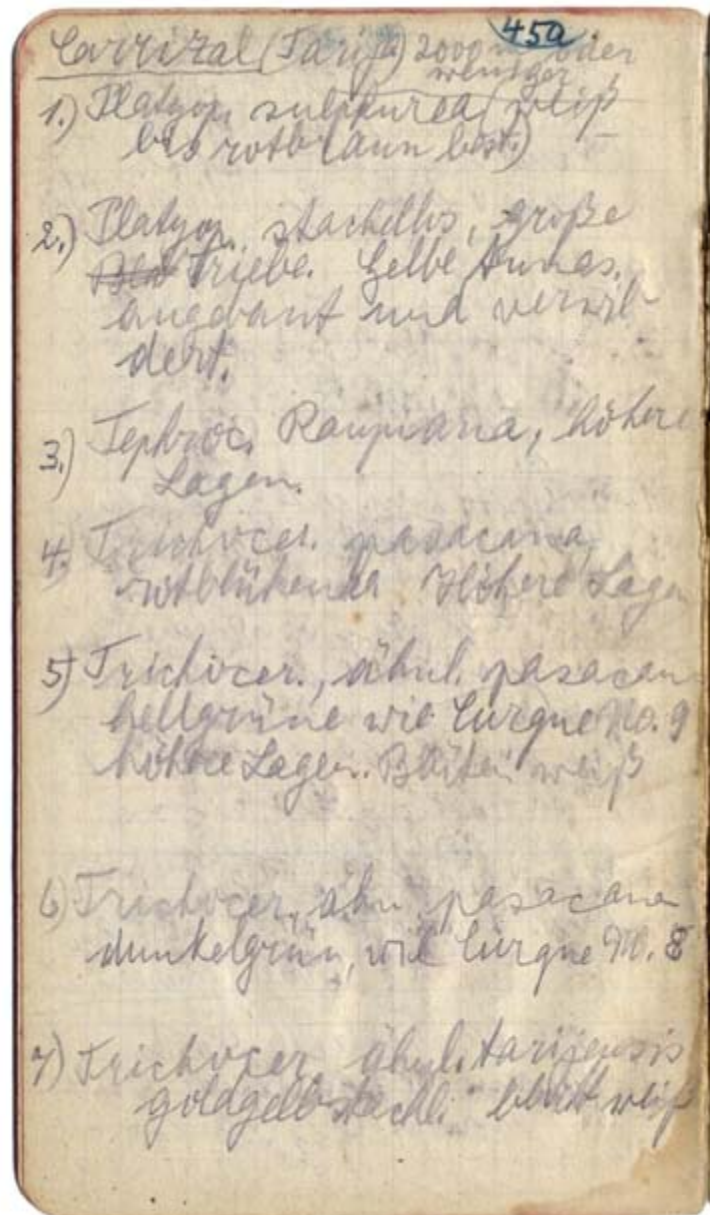 45a
Carrizal (Tarija) 2000 m oder
weniger
1.) Platyop. sulphurea (weiß
bis rotbraun best.)
2.) Platyop. stachellos, große
Triebe. Gelbe Ananas.
angebaut und verwil
dert.
3.) Tephroc. , höhere
Lagen.
4.) Trichocer. pasacana,
rotblühende Höhere Lagen
5) Trichocer., ähnl. pasacan
hellgrüne wie Curque No. 9
höhere Lagen. Blüten weiß
6) Trichocer, ähn pasacana
dunkelgrün, wie Curque No. 8
7) Trichocer. ähnl. tarijensis
goldgelbstachl. blüht weiß